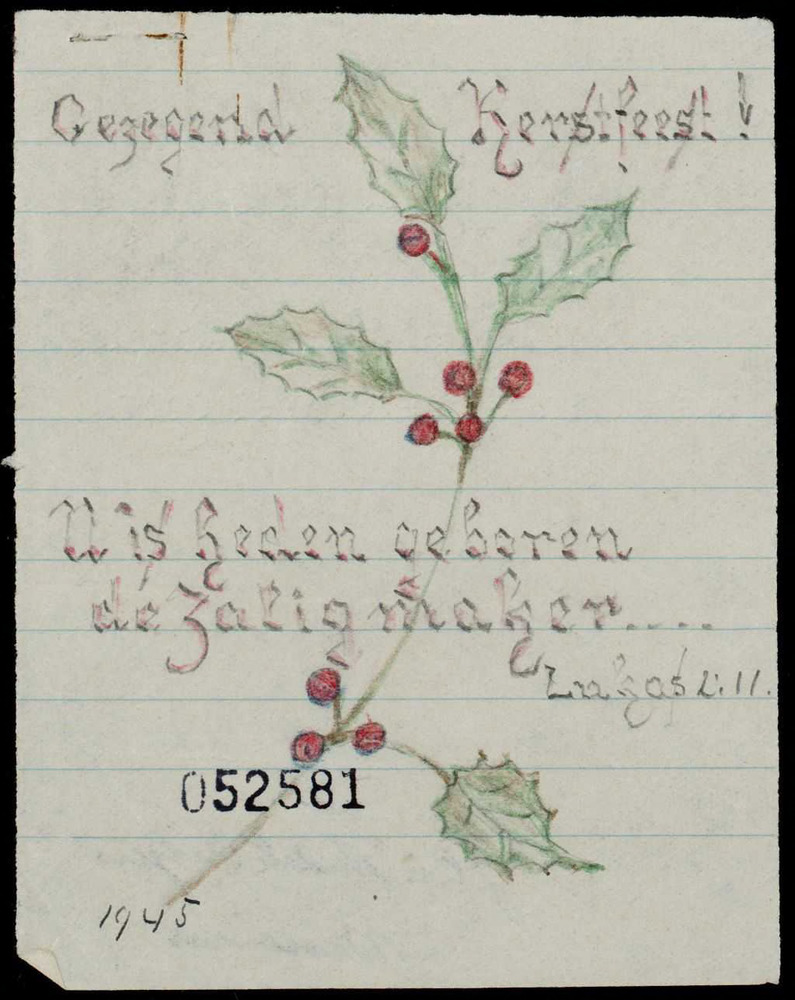 Gezegend Kerstfeest!
U is heden geboren
de Zaligmaker....
Lukas 2:11.
052581
1945